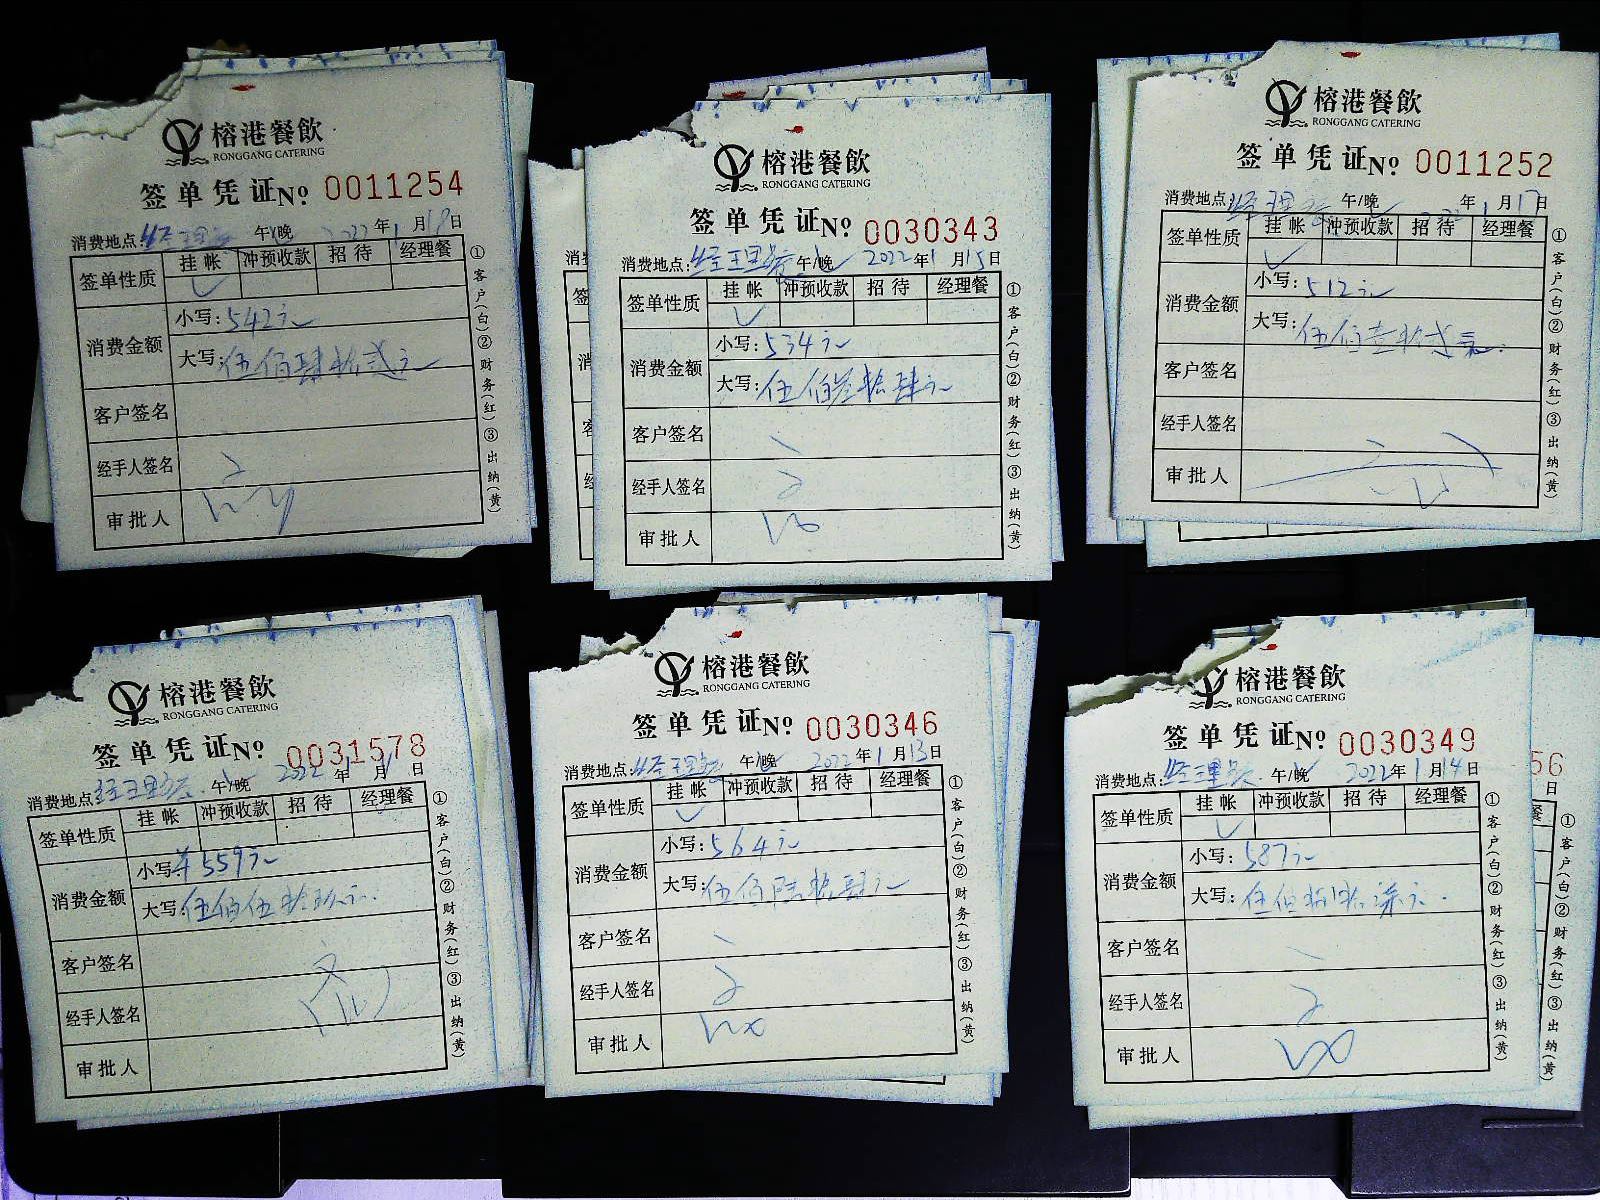 榕港餐飲
RONGGANG CATERING
签单凭证№ 0011254
消费地点:经理餐 午/晚 2022年1月19日
签单性质 挂帐 冲预收款 招待 经理餐
消费金额
小写:542元
大写:伍佰肆拾贰元
客户签名
经手人签名
审批人
①客户(白)②财务(红)③出纳(黄)
榕港餐飲
RONGGANG CATERING
签单凭证№ 0030343
消费地点:经理餐 午/晚 2022年1月15日
签单性质 挂帐 冲预收款 招待 经理餐
消费金额
小写:534元
大写:伍佰叁拾肆元
客户签名
经手人签名
审批人
①客户(白)②财务(红)③出纳(黄)
榕港餐飲
RONGGANG CATERING
签单凭证№ 0011252
消费地点:经理餐 午/晚 年1月17日
签单性质 挂帐 冲预收款 招待 经理餐
消费金额
小写:512元
大写:伍佰壹拾贰元
客户签名
经手人签名
审批人
①客户(白)②财务(红)③出纳(黄)
榕港餐飲
RONGGANG CATERING
签单凭证№ 0031578
消费地点:经理餐 午/晚 2022年1月 日
签单性质 挂帐 冲预收款 招待 经理餐
消费金额
小写:¥559元
大写:伍佰伍拾玖元
客户签名
经手人签名
审批人
①客户(白)②财务(红)③出纳(黄)
榕港餐飲
RONGGANG CATERING
签单凭证№ 0030346
消费地点:经理餐 午/晚 2022年1月13日
签单性质 挂帐 冲预收款 招待 经理餐
消费金额
小写:564元
大写:伍佰陆拾肆元
客户签名
经手人签名
审批人
①客户(白)②财务(红)③出纳(黄)
榕港餐飲
RONGGANG CATERING
签单凭证№ 0030349
消费地点:经理餐 午/晚 2022年1月14日
签单性质 挂帐 冲预收款 招待 经理餐
消费金额
小写:587元
大写:伍佰捌拾柒元
客户签名
经手人签名
审批人
①客户(白)②财务(红)③出纳(黄)
56
日
餐
①客户(白)②财务(红)③出纳(黄)